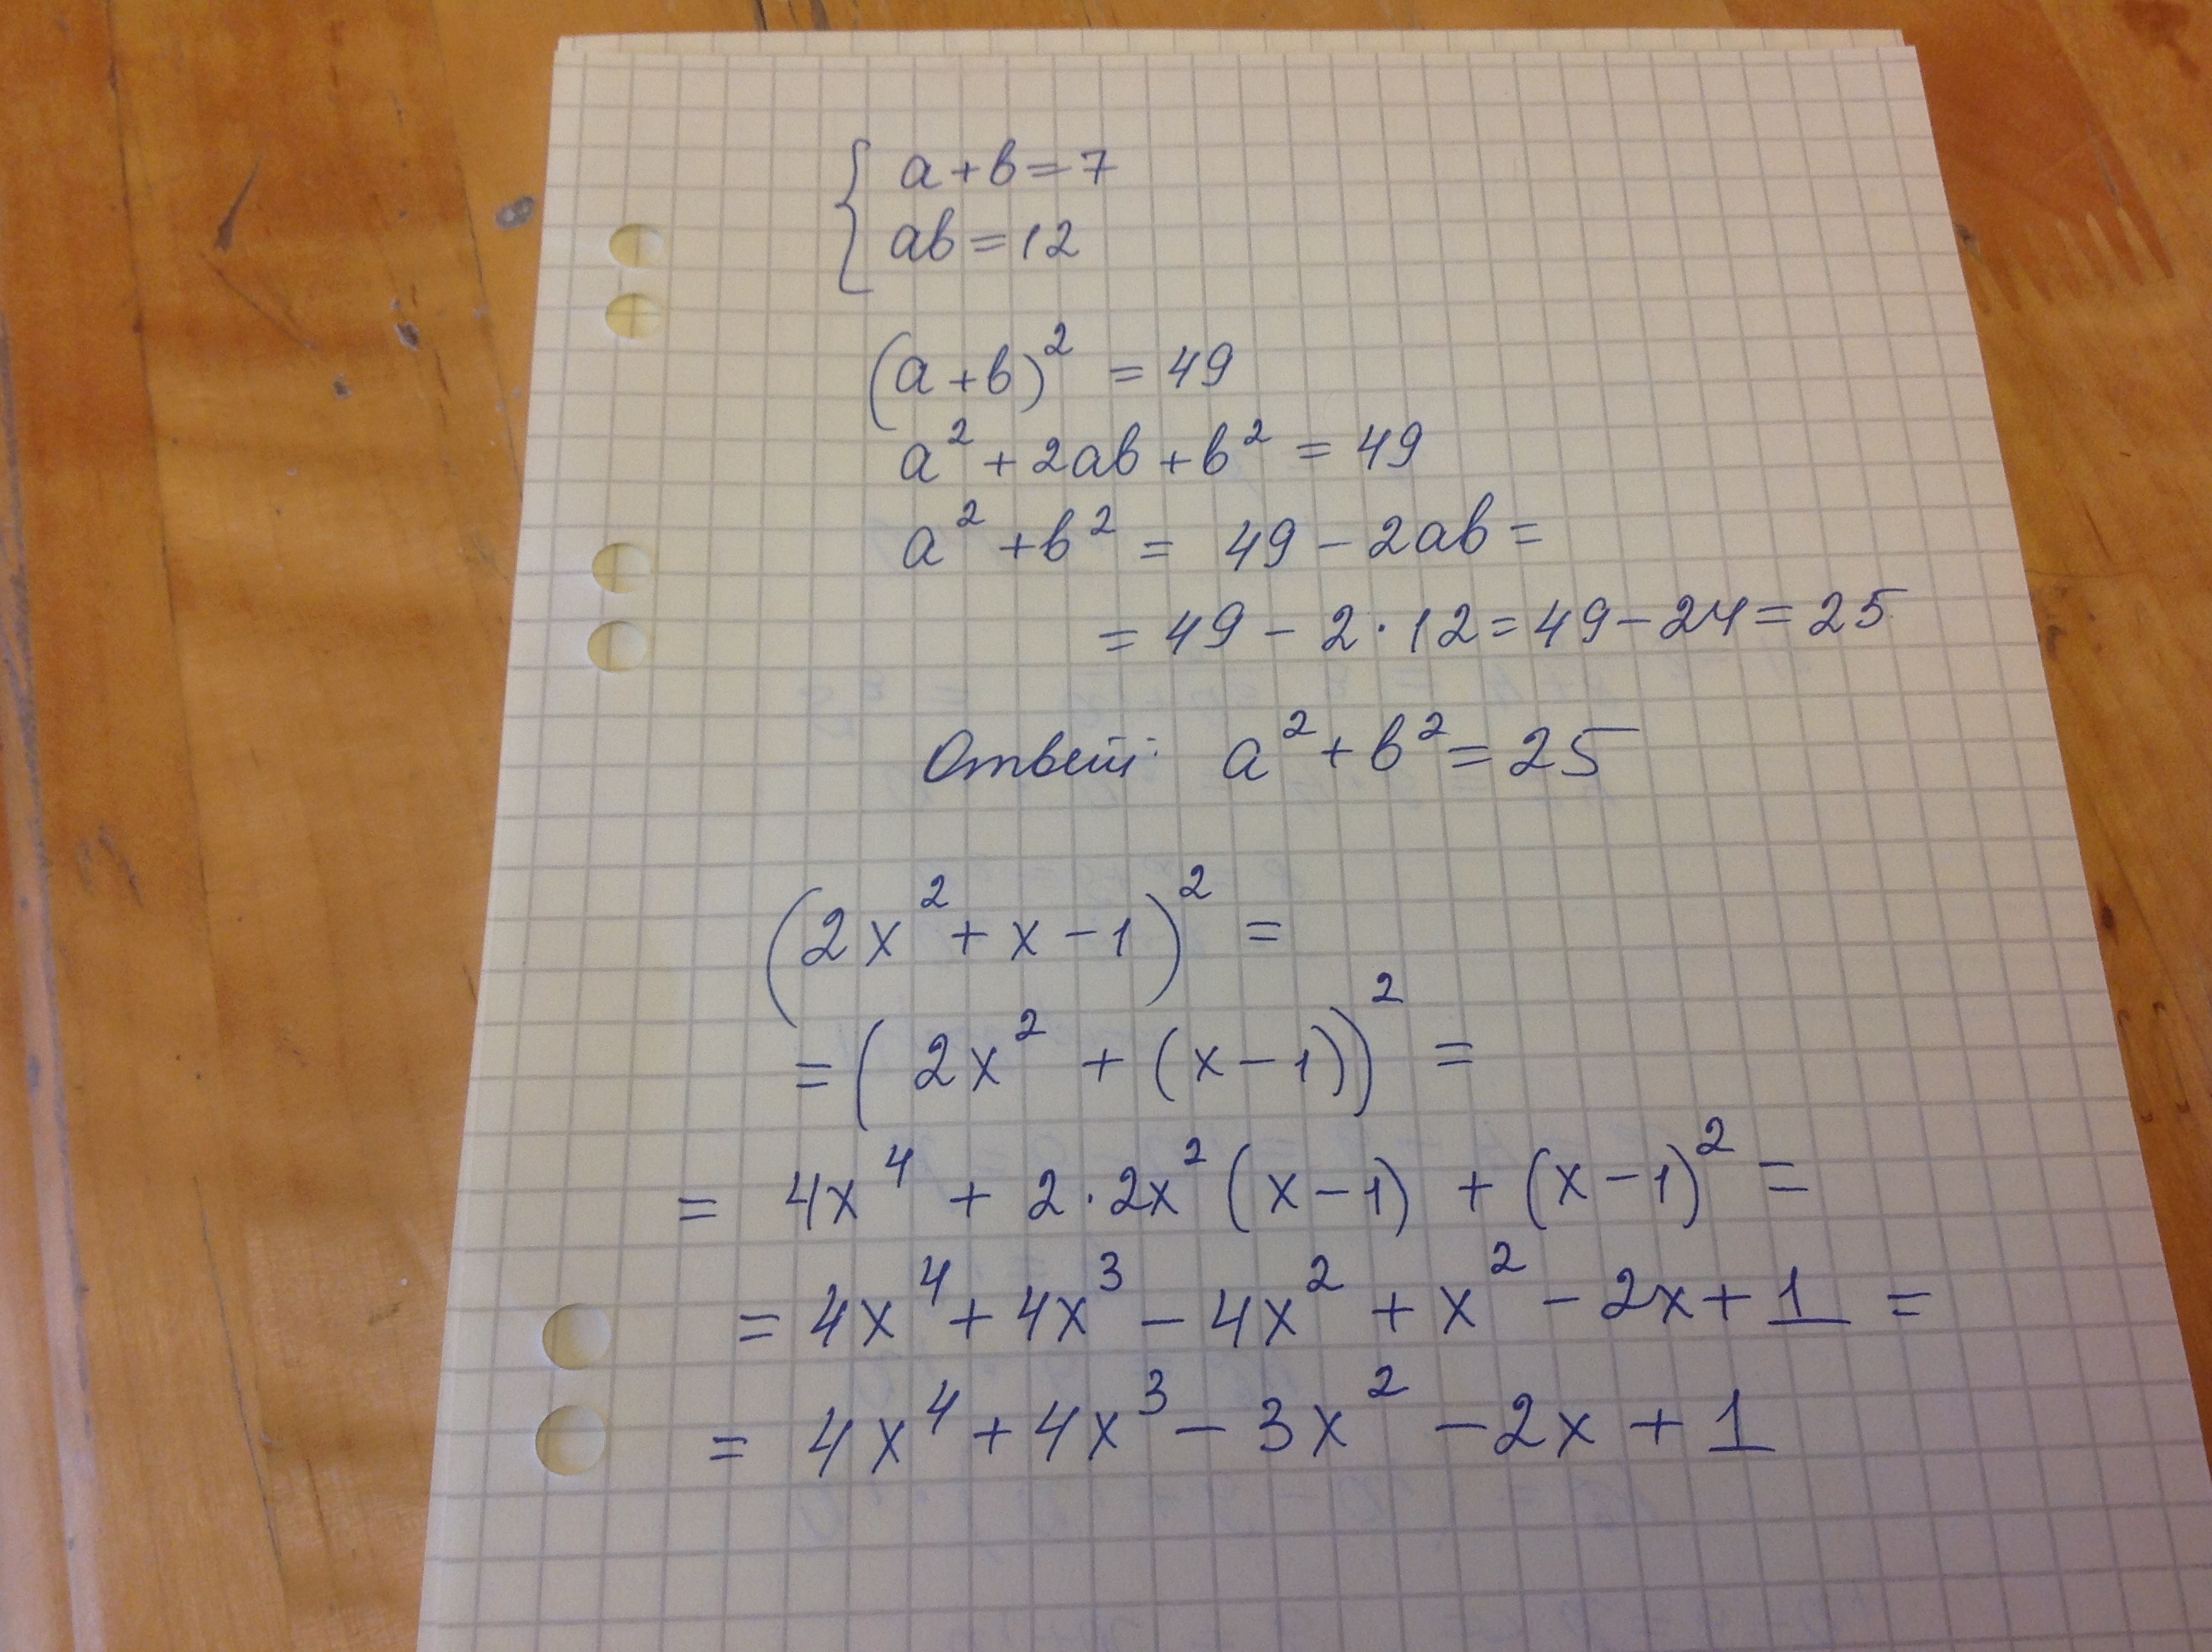 { a + b = 7
ab = 12
(a + b)² = 49
a² + 2ab + b² = 49
a² + b² = 49 - 2ab =
= 49 - 2 · 12 = 49 - 24 = 25
Ответ: a² + b² = 25
(2x² + x - 1)² =
= (2x² + (x - 1))² =
= 4x⁴ + 2 · 2x² (x - 1) + (x - 1)² =
= 4x⁴ + 4x³ - 4x² + x² - 2x + 1 =
= 4x⁴ + 4x³ - 3x² - 2x + 1